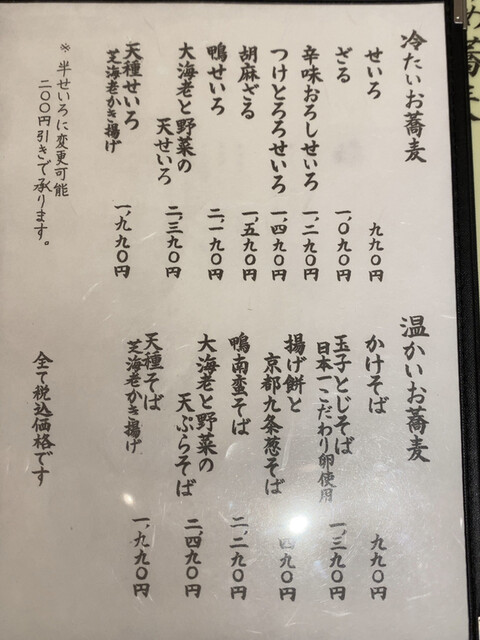 冷たいお蕎麦
せいろ 九九〇円
ざる 一、〇九〇円
辛味おろしせいろ 一、二九〇円
つけとろろせいろ 一、四九〇円
胡麻ざる 一、五九〇円
鴨せいろ 二、一九〇円
大海老と野菜の
天せいろ 二、三九〇円
天種せいろ 一、九九〇円
芝海老かき揚げ
※半せいろに変更可能
二〇〇円引きで承ります。
温かいお蕎麦
かけそば 九九〇円
玉子とじそば 一、三九〇円
日本一こだわり卵使用
揚げ餅と
京都九条葱そば 四九〇円
鴨南蛮そば 二、二九〇円
大海老と野菜の
天ぷらそば 二、四九〇円
天種そば 一、九九〇円
芝海老かき揚げ
全て税込価格です